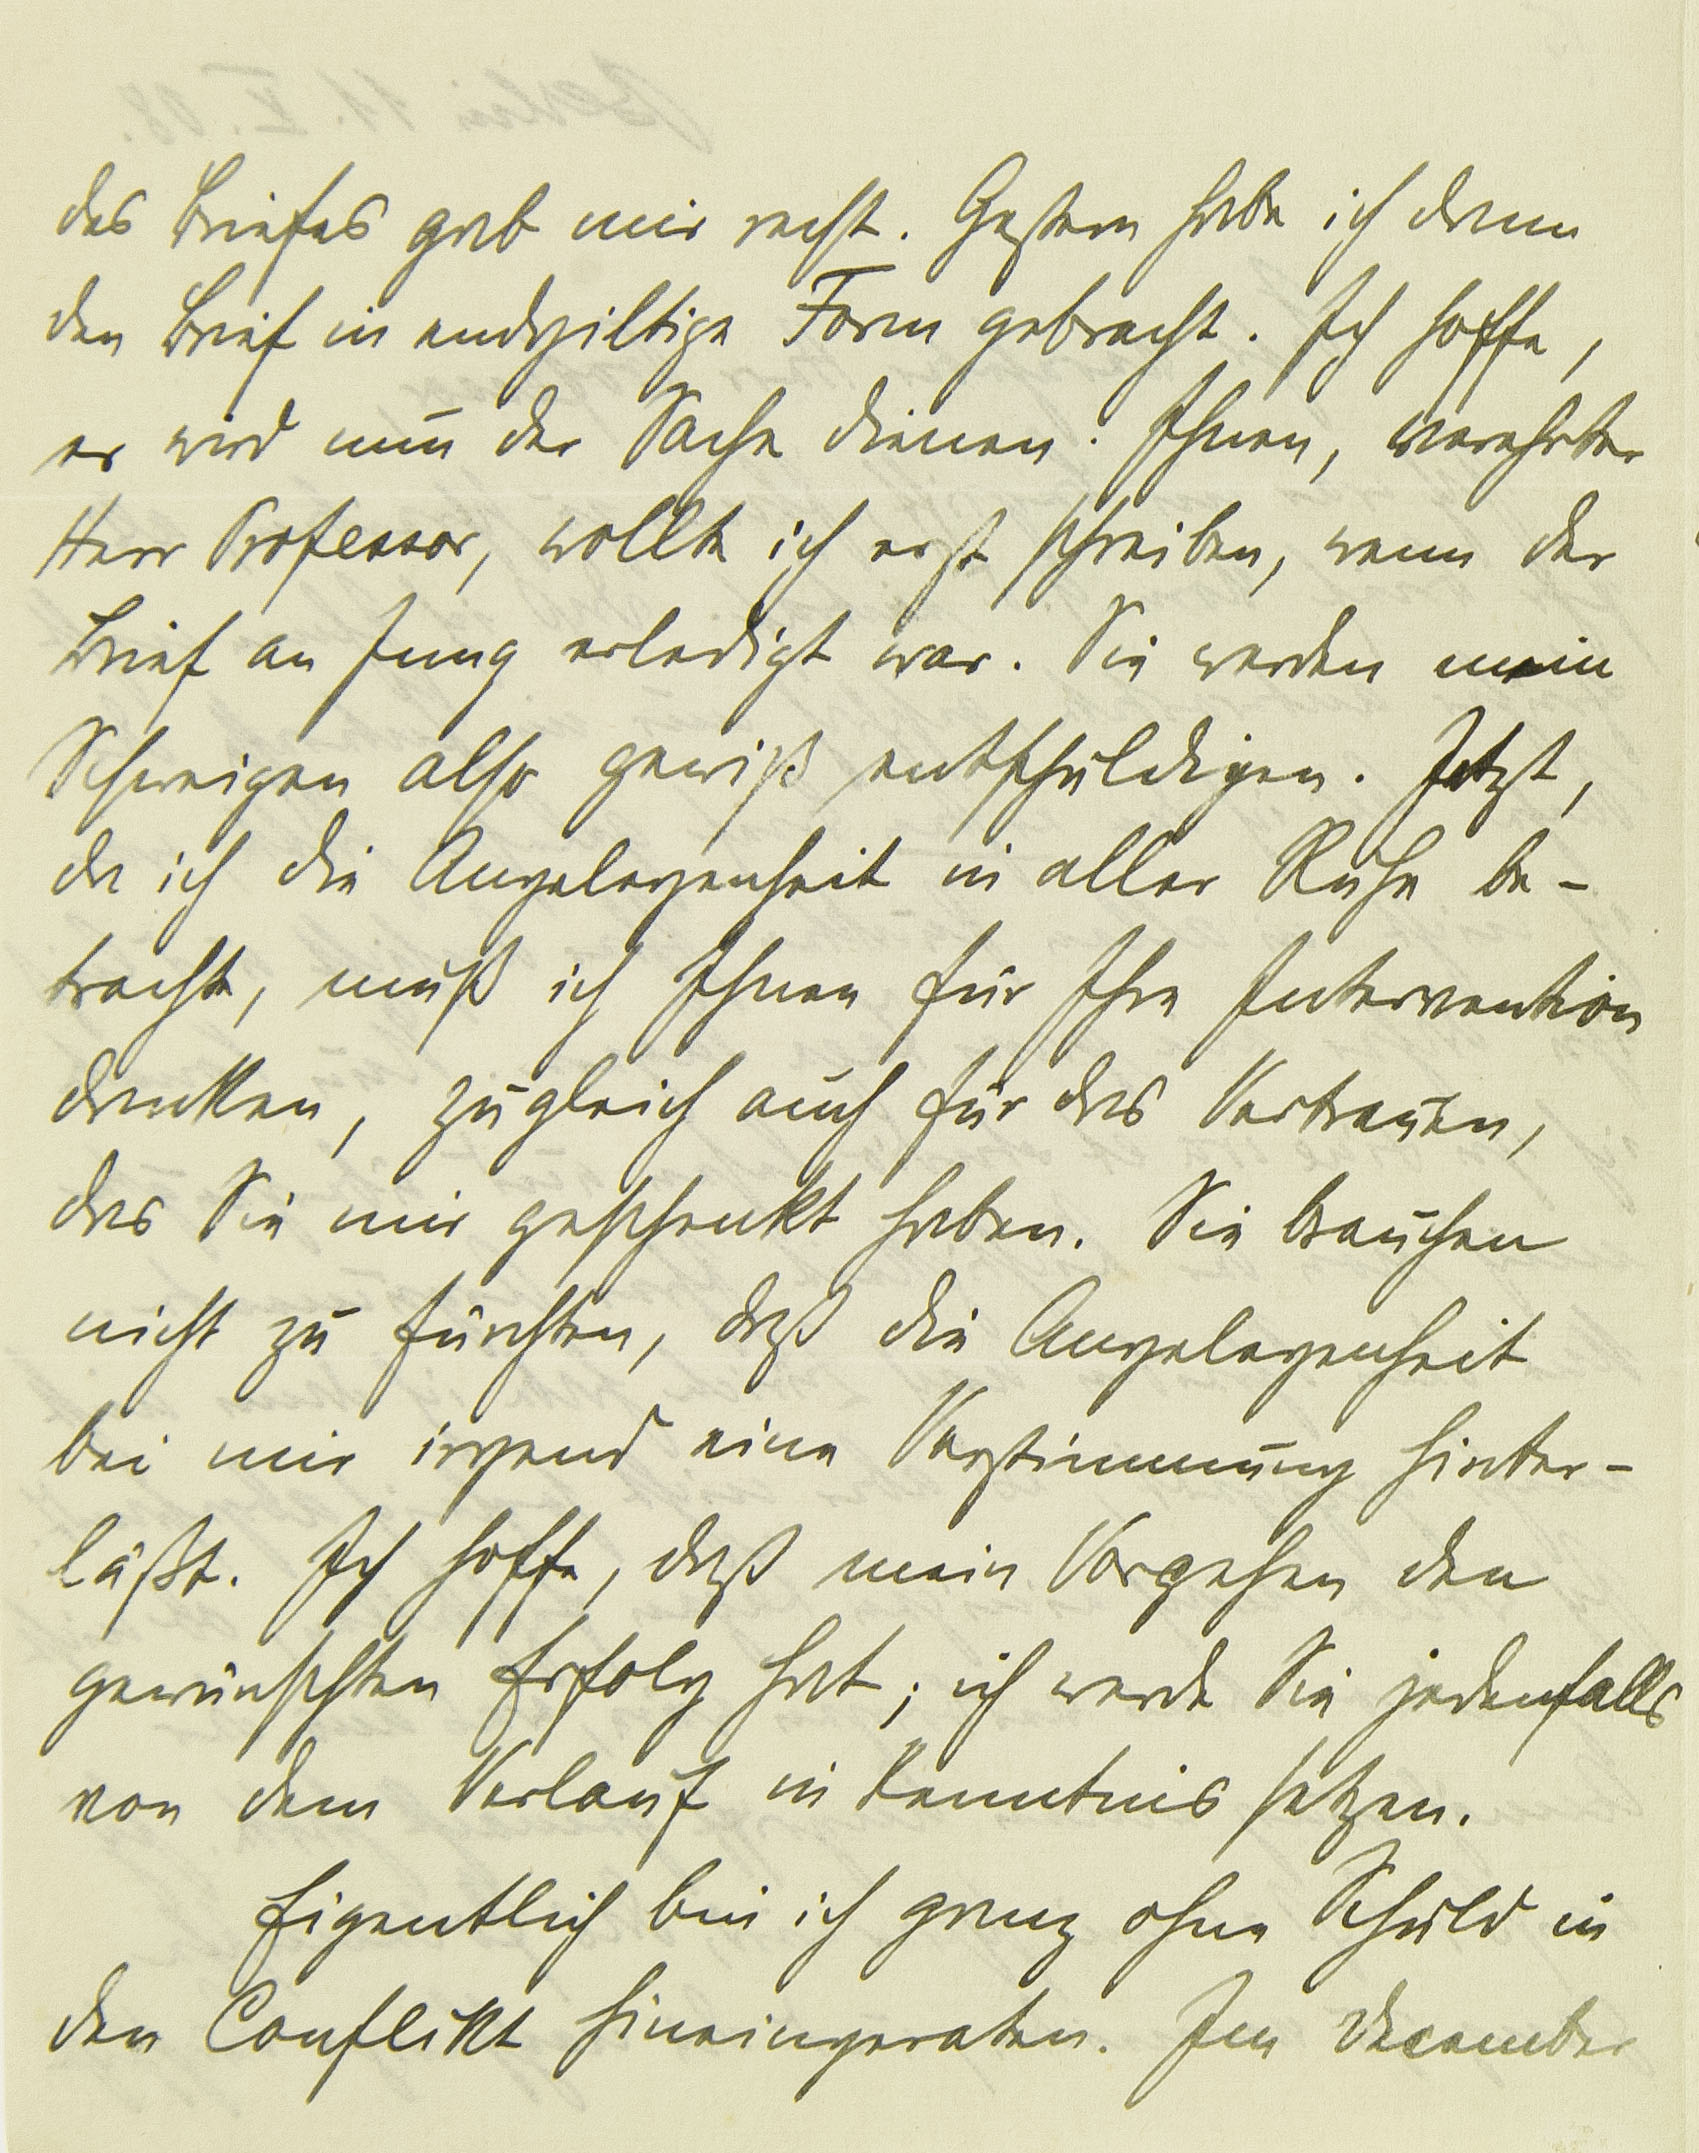 des Briefes gab mir recht. Gestern habe ich dann
den Brief in endgiltige Form gebracht. Ich hoffe,
er wird nun der Sache dienen. Ihnen, verehrter
Herr Professor, wollte ich erst schreiben, wenn der
Brief an Jung erledigt war. Sie werden mein
Schweigen also gewiß entschuldigen. Jetzt,
da ich die Angelegenheit in aller Ruhe be-
trachte, muß ich Ihnen für Ihre Intervention
danken, zugleich auch für das Vertrauen,
das Sie mir geschenkt haben. Sie brauchen
nicht zu fürchten, daß die Angelegenheit
bei mir irgend eine Verstimmung hinter-
läßt. Ich hoffe, daß mein Vorgehen den
gewünschten Erfolg hat; ich werde Sie jedenfalls
von dem Verlauf in Kenntnis setzen.
Eigentlich bin ich ganz ohne Schuld in
den Conflikt hineingeraten. Im December